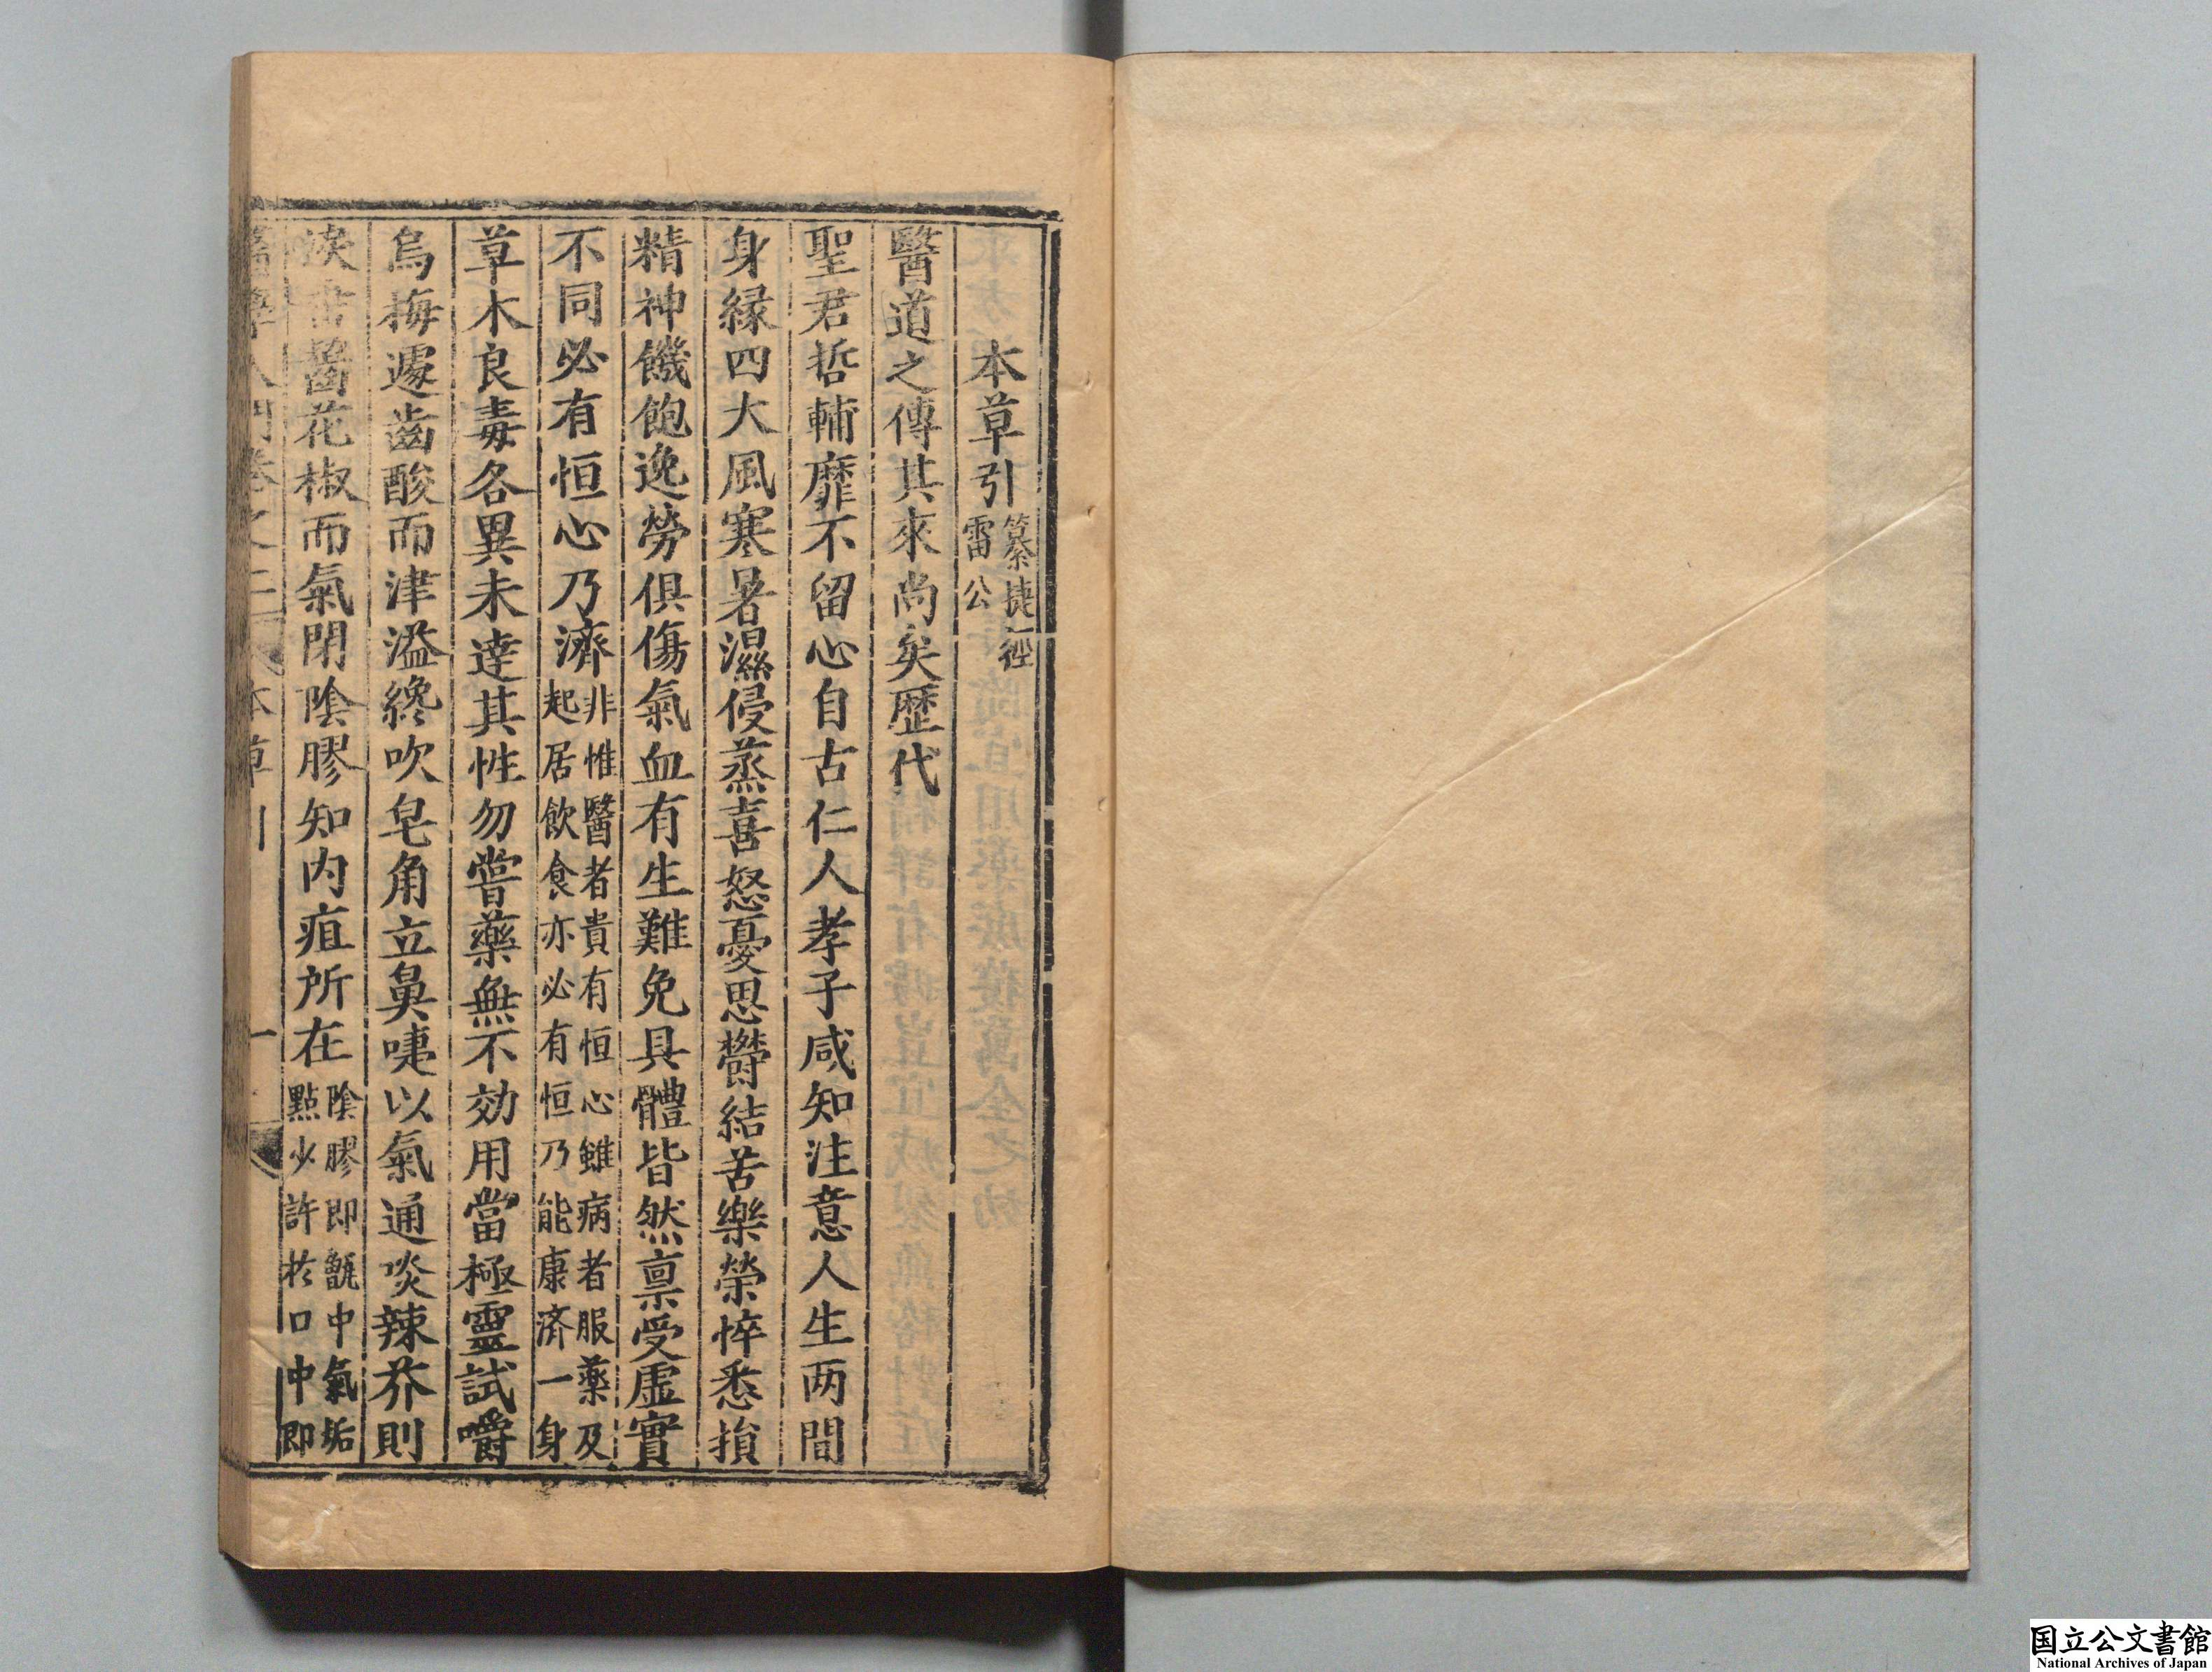 本草引 纂捷徑 雷公
醫道之傳其來尚矣歷代
聖君哲輔靡不留心自古仁人孝子咸知注意人生两間
身緣四大風寒暑濕侵蒸喜怒憂思欎結苦樂榮悴悉損
精神饑飽逸勞俱傷氣血有生難免具體皆然禀受虛實
不同必有恒心乃濟 非惟醫者貴有恒心雖病者服藥及 起居飲食亦必有恒乃能康済一身
草木良毒各異未達其性勿嘗藥無不効用當極靈試嚼
烏梅遽齒酸而津溢纔吹皂角立鼻嚏以氣通啖辣芥則
淚出囓花椒而氣閉陰膠知内疽所在 陰膠即甑中氣垢 點少許於口中即
醫學入門卷之二 本草引 一
国立公文書館
National Archives of Japan